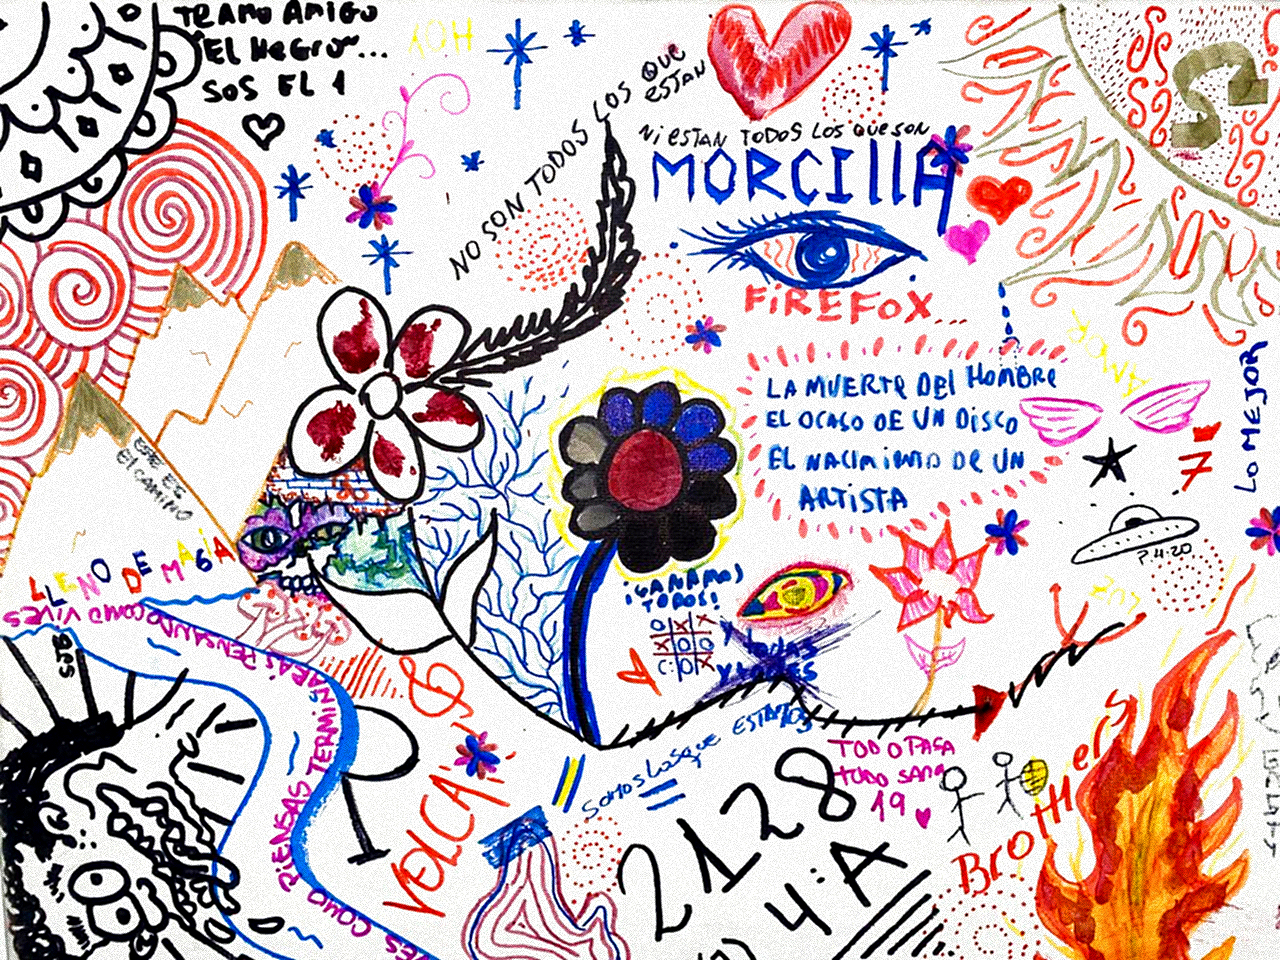 TE AMO AMIGO
"EL NEGRO"...
SOS EL 1
HOY
NO SON TODOS LOS QUE
ESTAN
NI ESTAN TODOS LOS QUE SON
MORCIllA
FiREFOX...
LA MUERTE DEL HOMBRE
EL OCASO DE UN DISCO
EL NACIMIENTO DE UN
ARTISTA
AMOR
LO MEJOR
7
7.4.20
ESTE ES
El CAMINO
LLENO DE MAGiA
PIENSAS COMO VIVES
TERMINARÁS PENSANDO COMO VIVES
¡GANAMOS
TODOS!
O X X
X O O
C: O X
Y TODAS
Y TODES
LUZ
SOMOS LOS QUE ESTAMOS
TODO PASA
TODO SANA
19
VOLCÁ
2128
4:A
BroTHers